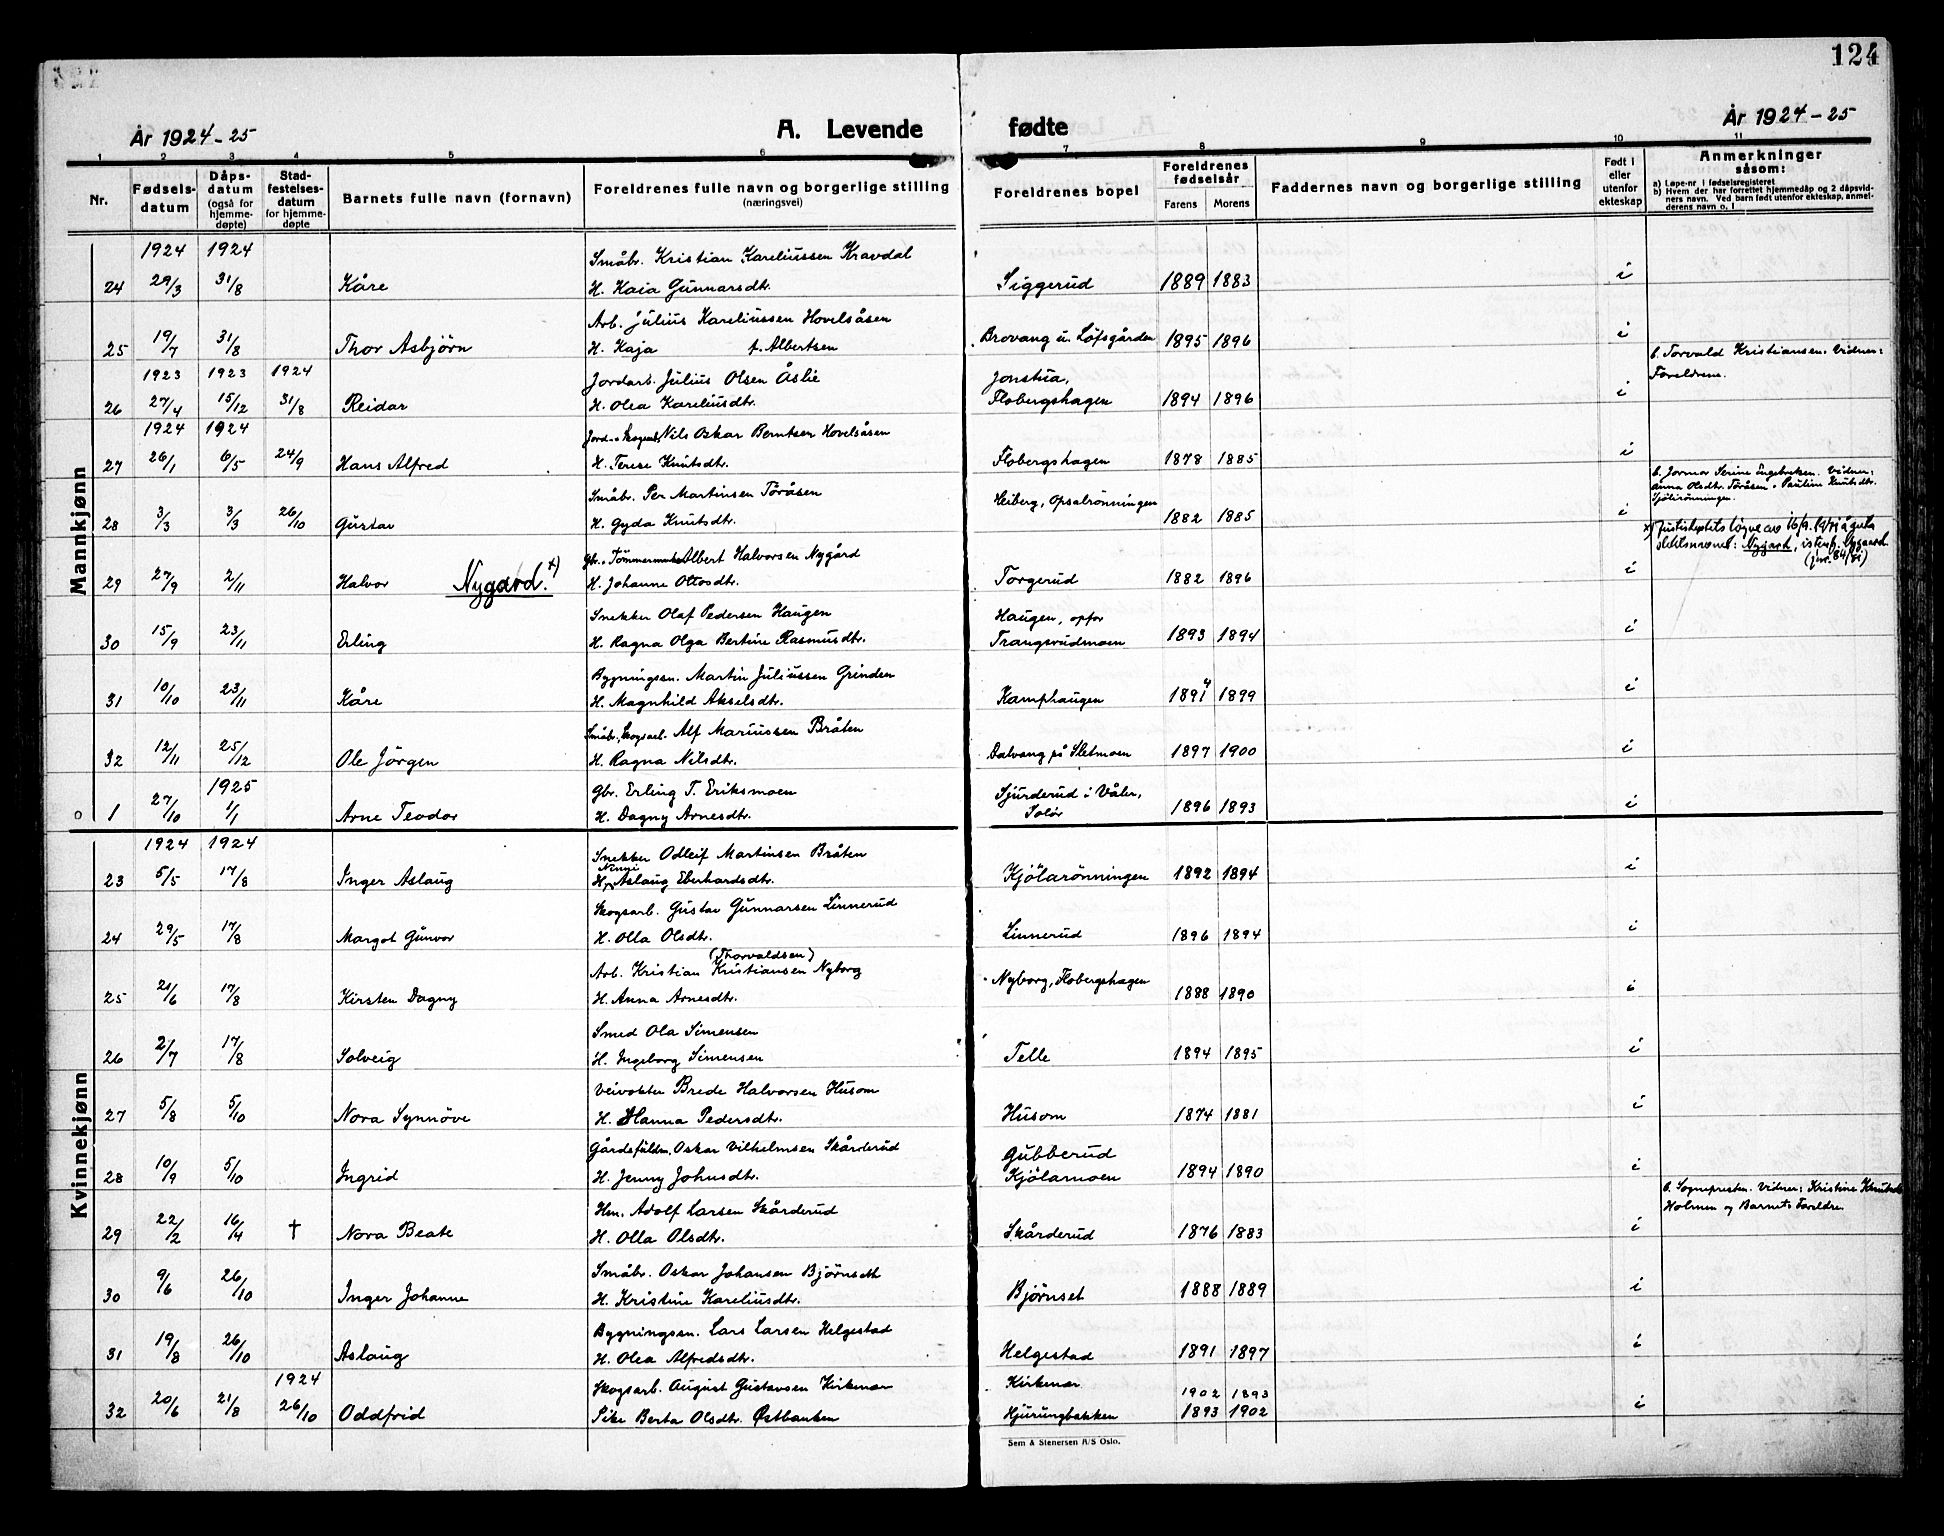 124
År 1924-25 A. Levende fødte År 1924-25
1 2 3 4 5 6 7 8 9 10 11
Nr. Fødselsdatum Dåpsdatum (også for hjemmedøpte) Stadfestelsesdatum for hjemmedøpte Barnets fulle navn (fornavn) Foreldrenes fulle navn og borgerlige stilling (næringsvei) Foreldrenes bopel Foreldrenes fødselsår Farens Morens Faddernes navn og borgerlige stilling Født i eller utenfor ekteskap Anmerkninger såsom:
a) Løpe-nr i fødselsregisteret
b) Hvem der har forrettet hjemmedåp og 2 dåpsvidners navn. Ved barn født utenfor ekteskap, anmelderens navn o. l
Mannkjønn
1924 1924 Småbr. Kristian Kareliussen Kravdal
24 29/3 31/8 Kåre H. Kaia Gunnarsdtr. Siggerud 1889 1883 i
Arb. Julius Kareliussen Hovelsåsen
25 19/7 31/8 Thor Asbjörn H. Kaja f. Albertsen Brovang u. Löfsgården 1895 1896 i
1923 1923 1924 Jordarb. Julius Olsen Åslie Jonstua, b. Torvald Kristiansen. Vidner: Foreldrene.
26 27/4 15/12 31/8 Reidar H. Olea Kareliusdtr. Flobergshagen 1894 1896 i
1924 1924 Nils Oskar Berntsen Hovelsåsen
27 26/1 6/5 24/9 Hans Alfred H. Terese Knutsdtr. Flobergshagen 1878 1885 i
Småbr. Per Martinsen Töråsen Heiberg, Opsalrönningen b. Jormor Serine Engebretsen. Vidner: Anna Olsdtr. Töråsen o Pauline Knutsdtr. Sjölirönningen.
28 3/3 3/3 26/10 Gustav H. Gyda Knutsdtr. 1882 1885 i
Gbr. o Tömmermerker Albert Halvorsen Nygård
29 27/9 2/11 Halvor Nygard. x) H. Johanne Ottosdtr. Torgerud 1882 1896 i
Snekker Olaf Pedersen Haugen Haugen, opfor
30 15/9 23/11 Erling H. Ragna Olga Bertine Rasmusdtr. Trangsrudmoen 1893 1894 i
Bygningssn. Martin Juliussen Grinden
31 10/10 23/11 Kåre H. Magnhild Akselsdtr. Kamphaugen 1891 4 1899 i
Småbr., Skogsarb. Alf Mariussen Bråten
32 12/11 25/12 Ole Jörgen H. Ragna Nilsdtr. Dalvang på Sletmoen 1897 1900 i
1925 Gbr. Erling T. Eriksmoen Sjurderud i Våler,
o 1 27/10 1/1 Arne Teodor H. Dagny Arnesdtr. Solör 1896 1893 i
Kvinnekjønn
1924 1924 Snekker Odleif Martinsen Bråten
23 5/5 17/8 Inger Aslaug H. Nenni Aslaug Eberhardsdtr. Kjölarönningen 1892 1894 i
Skogsarb. Gustav Gunnarsen Linnerud
24 29/5 17/8 Margot Gunvor H. Olla Olsdtr. Linnerud 1896 1894 i
(Thorvaldsen)
Arb. Kristian Kristiansen Nyborg
25 21/6 17/8 Kirsten Dagny H. Anna Arnesdtr. Nyborg, Flobergshagen 1888 1890 i
Smed Ola Simensen
26 2/7 17/8 Solveig H. Ingeborg Simensen Telle 1894 1895 i
Veivokter Brede Halvorsen Husom
27 5/8 5/10 Nora Synnöve H. Hanna Pedersdtr. Husom 1874 1881 i
Gårdsfuldm. Oskar Vilhelmsen Skårderud Gubberud
28 10/9 5/10 Ingrid H. Jenny Johnsdtr. Kjölamoen 1894 1890 i
Hm. Adolf Larsen Skårderud b. Sognepresten. Vidner: Kristine Holmen og Barnets Foreldre.
29 22/2 16/4 † Nora Beate H. Olla Olsdtr. Skårderud 1876 1883 i
Småbr. Oskar Johansen Björnseth
30 9/6 26/10 Inger Johanne H. Kristine Kareliusdtr. Björnset 1888 1889 i
Bygningssn. Lars Larsen Helgestad
31 19/8 26/10 Aslaug H. Olea Alfredsdtr. Helgestad 1891 1897 i
1924 Skogsarb. August Gustavsen Kirkenær Kirkenær 1902 1893
32 20/6 21/8 26/10 Oddfrid Pike Berta Olsdtr. Östbanken Hjurungbakken 1893 1902 i
Sem & Stenersen A/S Oslo.